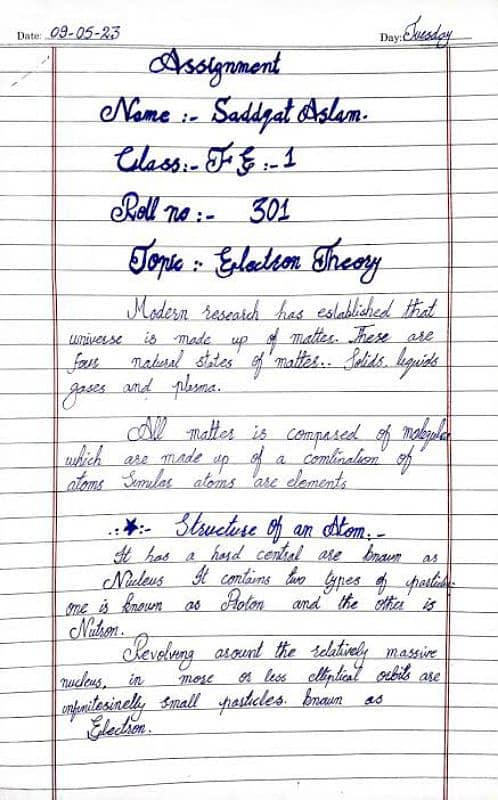 Date: 09-05-23 Day: Tuesday
Assignment
Name :- Saddqat Aslam.
Class:- F E :- 1
Roll no :- 301
Topic :- Electron Theory
Modern research has established that
universe is made up of matter. These are
four natural states of matter.. Solids, liquids
gases and plasma.
All matter is compased of molequles
which are made up of a combination of
atoms Similar atoms are elements
.:★:- Structure of an Atom.-
It has a hard central are known as
Nucleus It contains two types of particles.
one is known as Proton and the other is
Nutron.
Revolving around the relatively massive
nucleus, in more or less elliptical orbits are
infinitesinelly small particles. known as
Electron.